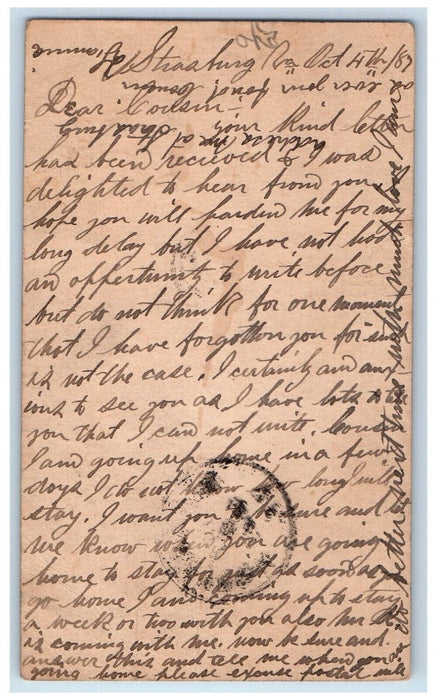 Strasburg Va Oct 4th/87
Dear Cousin—
your kind letter
had been recieved & I was
delighted to hear from you
hope you will parden me for my
long delay but I have not had
an oppertunity to write before
but do not think for one moment
that I have forgotton you for such
is not the case. I certainly am anx-
ious to see you as I have lots to tell
you that I can not write. Cousin
I am going up home in a few
days I do not know how long I will
stay. I want you to be sure and let
me know when you are going
home to stay for just as soon as
go home I am coming up to stay
a week or two with you also
is coming with me. now be sure and
answer this and tell me when you
going home please excuse postal
do better next time with much love
Address me at Strasburg
your cousin